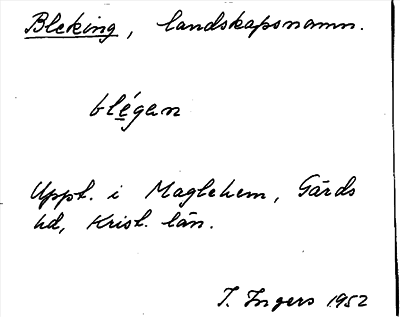 Bleking, landskapsnamn.
blégan
Uppt. i Maglehem, Gärds
hd, Krist. län.
I. Ingers 1952